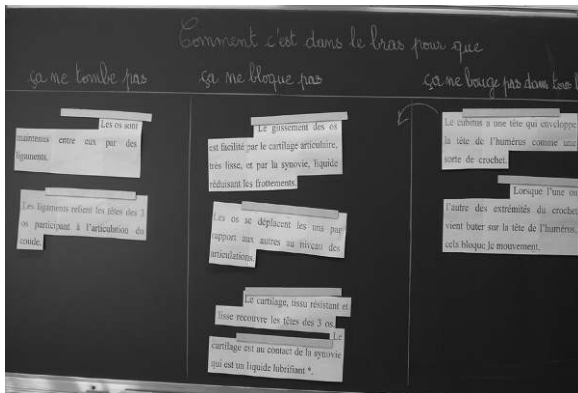 Comment c'est dans le bras pour que
ça ne tombe pas
ça ne bloque pas
ça ne bouge pas dans tous l
Les os sont
maintenus entre eux par des
ligaments.
Les ligaments relient les têtes des 3
os participant à l'articulation du
coude.
Le glissement des os
est facilité par le cartilage articulaire,
très lisse, et par la synovie, liquide
réduisant les frottements.
Les os se déplacent les uns par
rapport aux autres au niveau des
articulations.
Le cartilage, tissu résistant et
lisse recouvre les têtes des 3 os.
Le
cartilage est au contact de la synovie
qui est un liquide lubrifiant *.
Le cubitus a une tête qui enveloppe
la tête de l'humérus comme une
sorte de crochet.
Lorsque l'une ou
l'autre des extrémités du crochet
vient buter sur la tête de l'humérus,
cela bloque le mouvement.